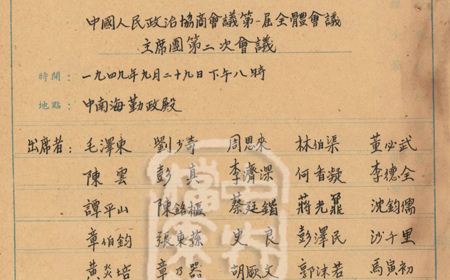 中國人民政治協商會議第一屆全體會議
主席團第二次會議
時間： 一九四九年九月二十九日下午八時
地點： 中南海勤政殿
出席者：毛澤東 劉少奇 周恩來 林伯渠 董必武
陳雲 彭真 李濟深 何香凝 李德全
譚平山 陳銘樞 蔡廷鍇 蔣光鼐 沈鈞儒
章伯鈞 張東蓀 史良 彭澤民 沙千里
黃炎培 章乃器 胡厥文 郭沫若 馬寅初